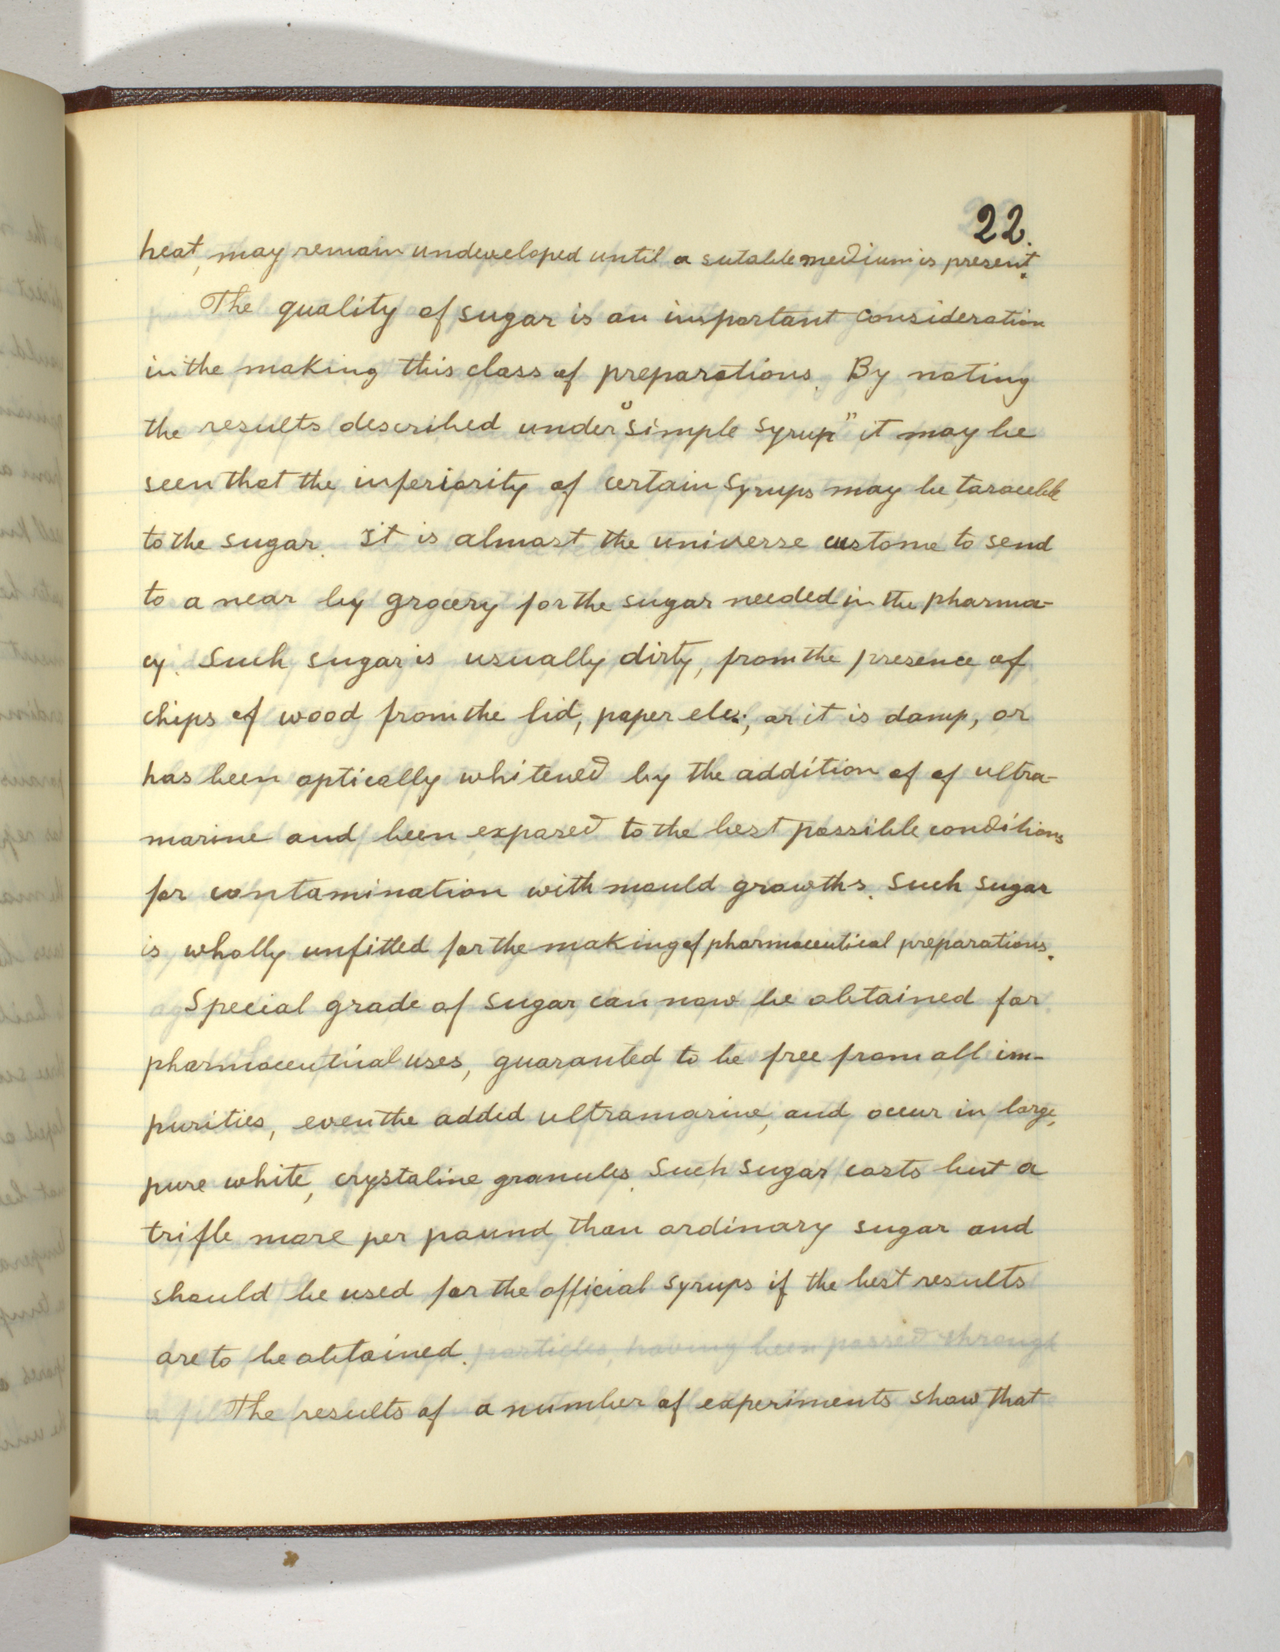 22.
heat, may remain undeveloped until a sutable medium is present.
The quality of sugar is an important consideration
in the making this class of preparations. By noting
the results described under "Simple Syrup" it may be
seen that the inferiority of certain Syrups may be
to the sugar. It is almost the universe custome to send
to a near by grocery for the sugar needed in the pharma-
cy. Such sugar is usually dirty, from the presence of
chips of wood from the lid, paper etc., or it is damp, or
has been optically whitened by the addition of of ultra-
marine and been exposed to the best possible conditions
for contamination with mould growths. Such sugar
is wholly unfitted for the making of pharmaceutical preparations.
Special grade of sugar can now be obtained for
pharmaceutical uses, guaranted to be free from all im-
purities, even the added ultramarine, and occur in large,
pure white, crystaline granules. Such sugar costs but a
trifle more per pound than ordinary sugar and
should be used for the official syrups if the best results
are to be obtained.
The results of a number of experiments show that